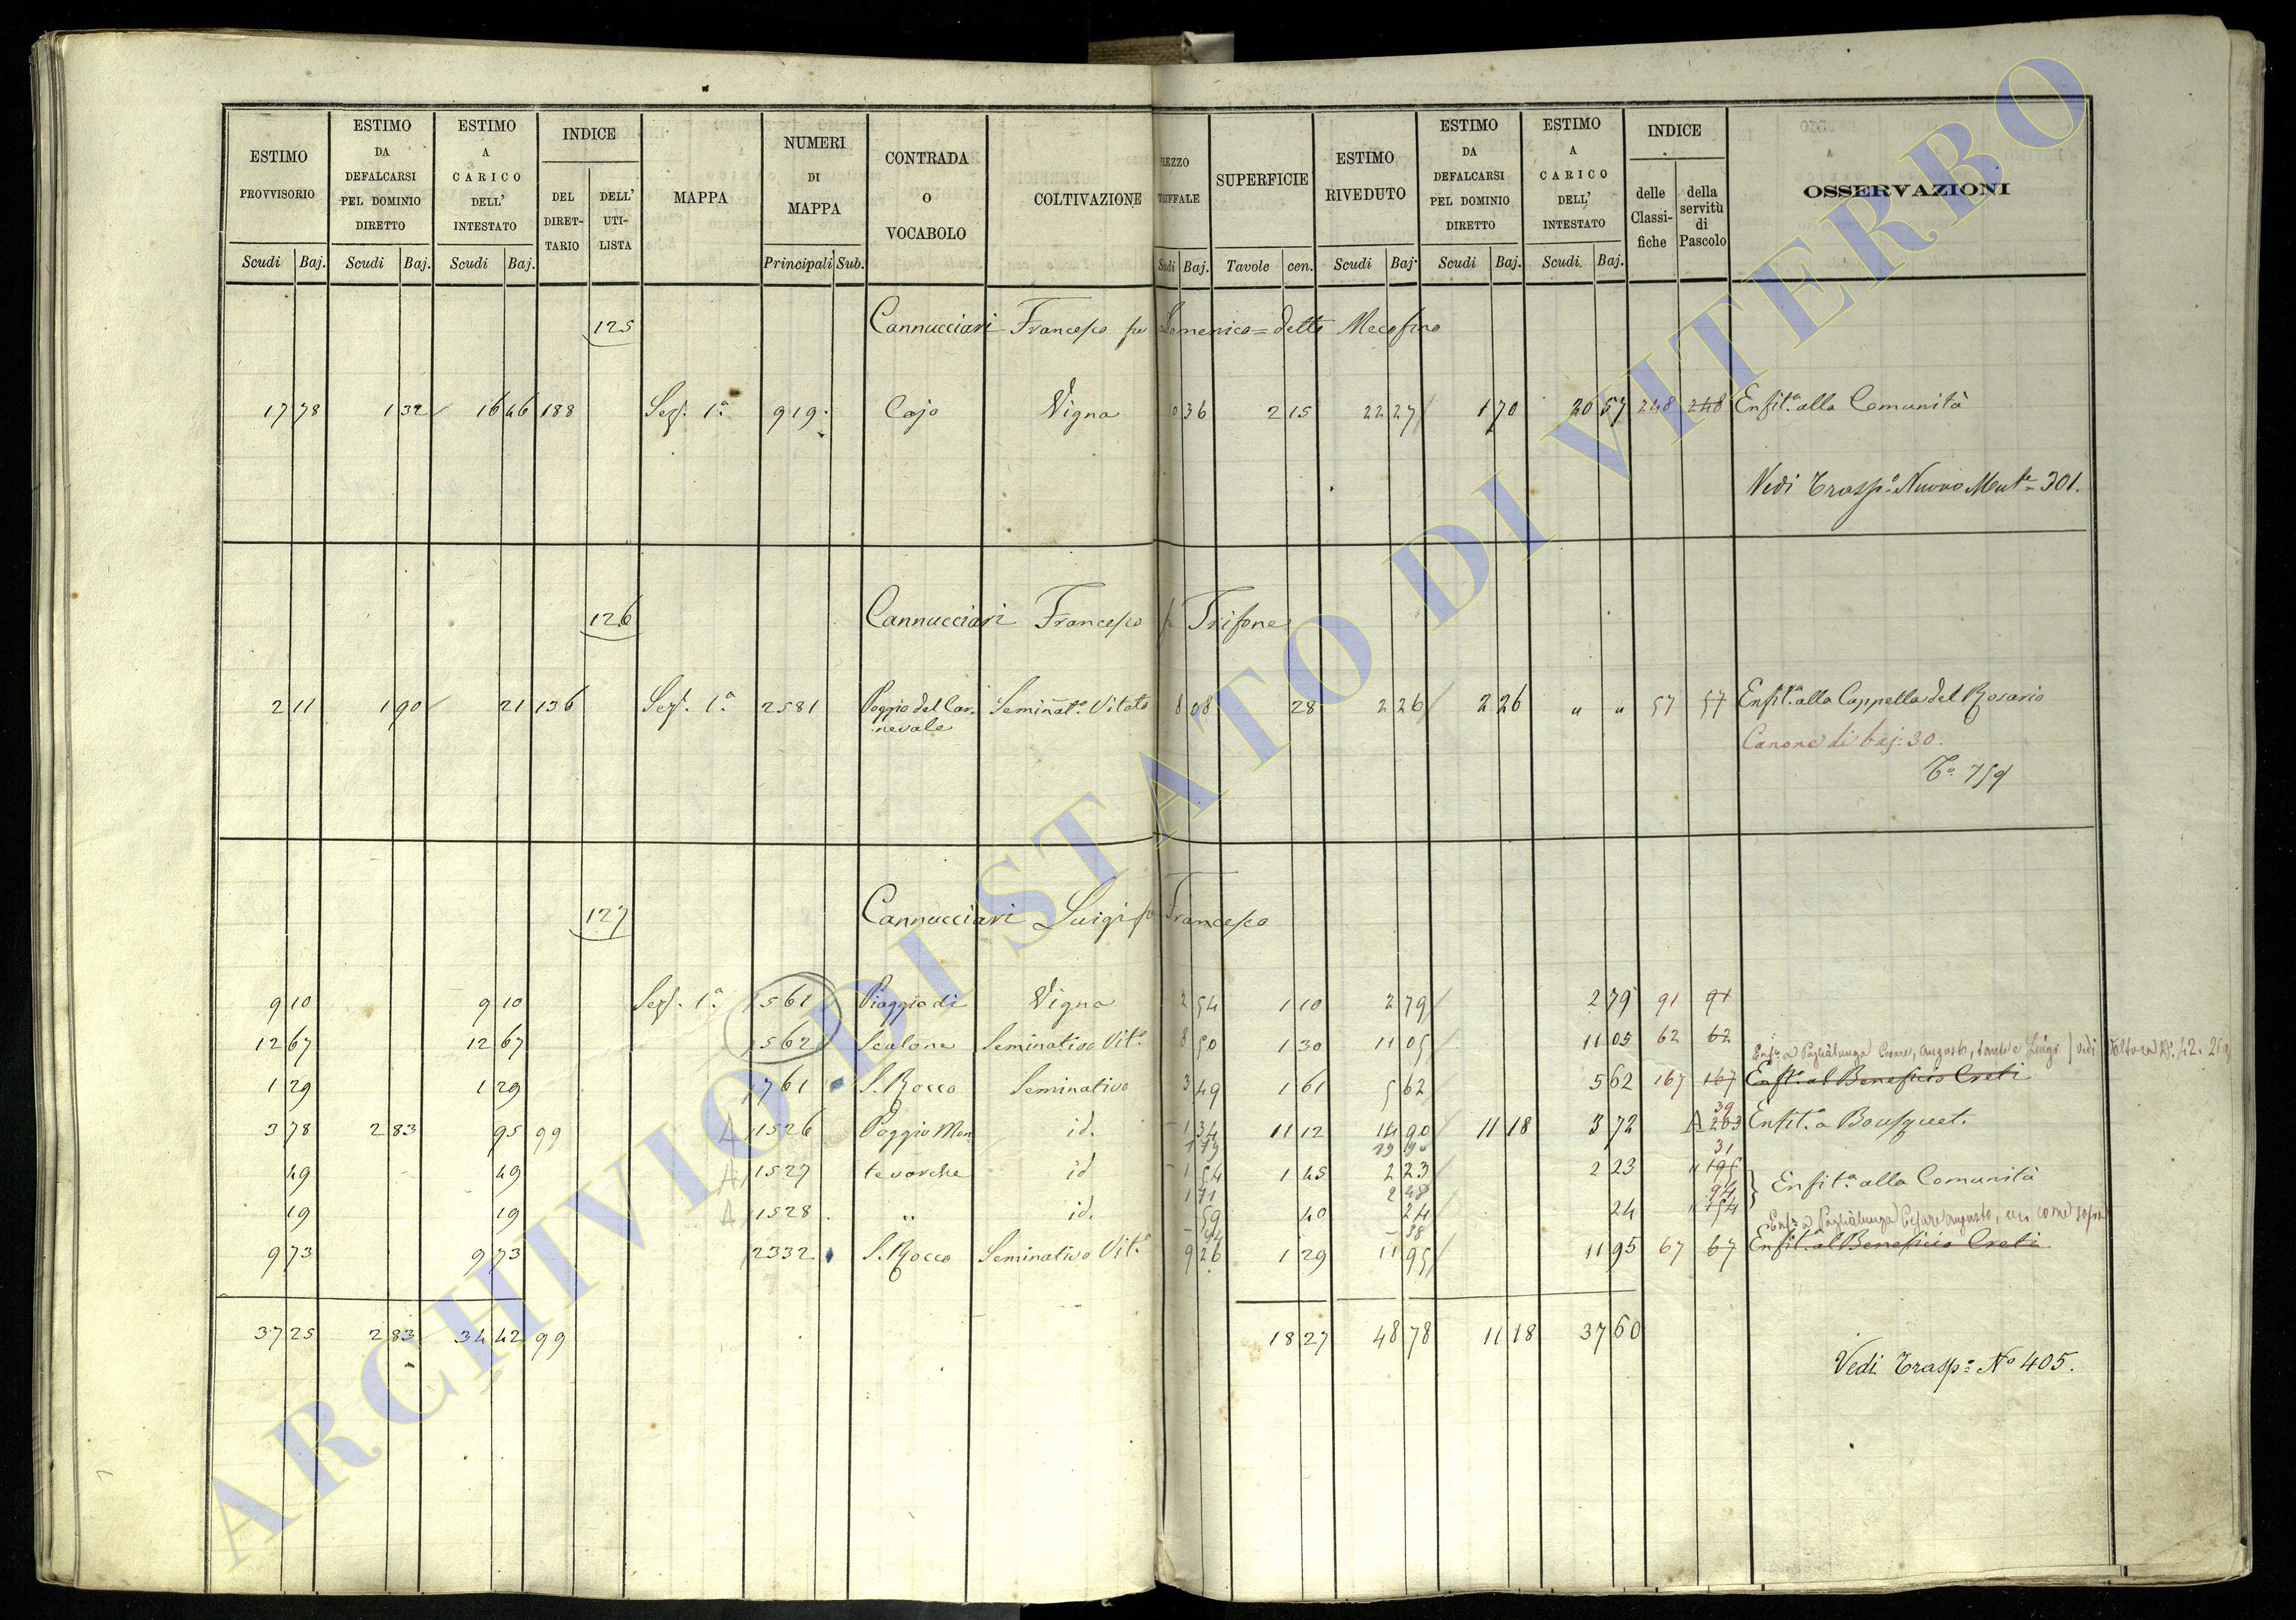 ESTIMO PROVVISORIO | ESTIMO DA DEFALCARSI PEL DOMINIO DIRETTO | ESTIMO A CARICO DELL' INTESTATO | INDICE | MAPPA | NUMERI DI MAPPA | CONTRADA O VOCABOLO | COLTIVAZIONE | REZZO RIFFALE | SUPERFICIE | ESTIMO RIVEDUTO | ESTIMO DA DEFALCARSI PEL DOMINIO DIRETTO | ESTIMO A CARICO DELL' INTESTATO | INDICE | OSSERVAZIONI
DEL DIRETTARIO | DELL' UTILISTA | delle Classifiche | della servitù di Pascolo
Scudi | Baj. | Scudi | Baj. | Scudi | Baj. | Principali | Sub. | Baj. | Tavole | cen. | Scudi | Baj. | Scudi | Baj. | Scudi | Baj.
125 Cannucciari Francesco fu Domenico = detto
17 78 | 1 32 | 16 46 | 188 | Sez. 1ª | 919 | Cajo | Vigna | 0 36 | 2 15 | 22 27 | 1 70 | 20 57 | 248 | 248 | Enfit.ª alla Comunità
Vedi Trasp.º Nuovo 301.
126 Cannucciari Francesco fu Trifone
2 11 | 1 90 | 21 | 136 | Sez. 1ª | 2581 | Poggio del Carnevale | Seminat.º Vitato | 8 08 | 28 | 2 26 | 2 26 | " " | 57 | 57 | Enfit.ª alla Cappella del Rosario
Canone di baj: 30.
T.º 759
127 Cannucciari Luigi fu Francesco
9 10 | 9 10 | Sez. 1ª | 561 | Piaggia di | Vigna | 2 54 | 1 10 | 2 79 | 2 79 | 91 | 91
12 67 | 12 67 | 562 | Scalone | Seminativo Vit.º | 8 50 | 1 30 | 11 05 | 11 05 | 62 | 62
Enf.ª a Pagliàlunga Cesare, Augusto, Sante e Luigi
1 29 | 1 29 | 761 | S. Rocco | Seminativo | 3 49 | 1 61 | 5 62 | 5 62 | 167 | 167 | Enfit.ª al Beneficio Creti
3 78 | 2 83 | 95 | 99 | A | 1526 | Poggio Mon | id. | 1 34 | 11 12 | 14 90 | 11 18 | 3 72 | 39 | A 203 | Enfit.ª a Bousquet.
49 | 49 | A | 1527 | tevorche | id | 1 54 | 1 45 | 2 23 | 2 23 | 31 | 195
Enfit.ª alla Comunità
19 | 19 | A | 1528 | " | id. | 59 | 40 | 24 | 24 | 94 | 154
Enf.ª a Pagliàlunga Cesare Augusto, come sopra
9 73 | 9 73 | 2332 | S. Rocco | Seminativo Vit.º | 9 26 | 1 29 | 11 95 | 11 95 | 67 | 67 | Enfit.ª al Beneficio Creti
37 25 | 2 83 | 34 42 | 99 | 18 27 | 48 78 | 11 18 | 37 60
Vedi Trasp.º Nº 405.
ARCHIVIO DI STATO DI VITERBO